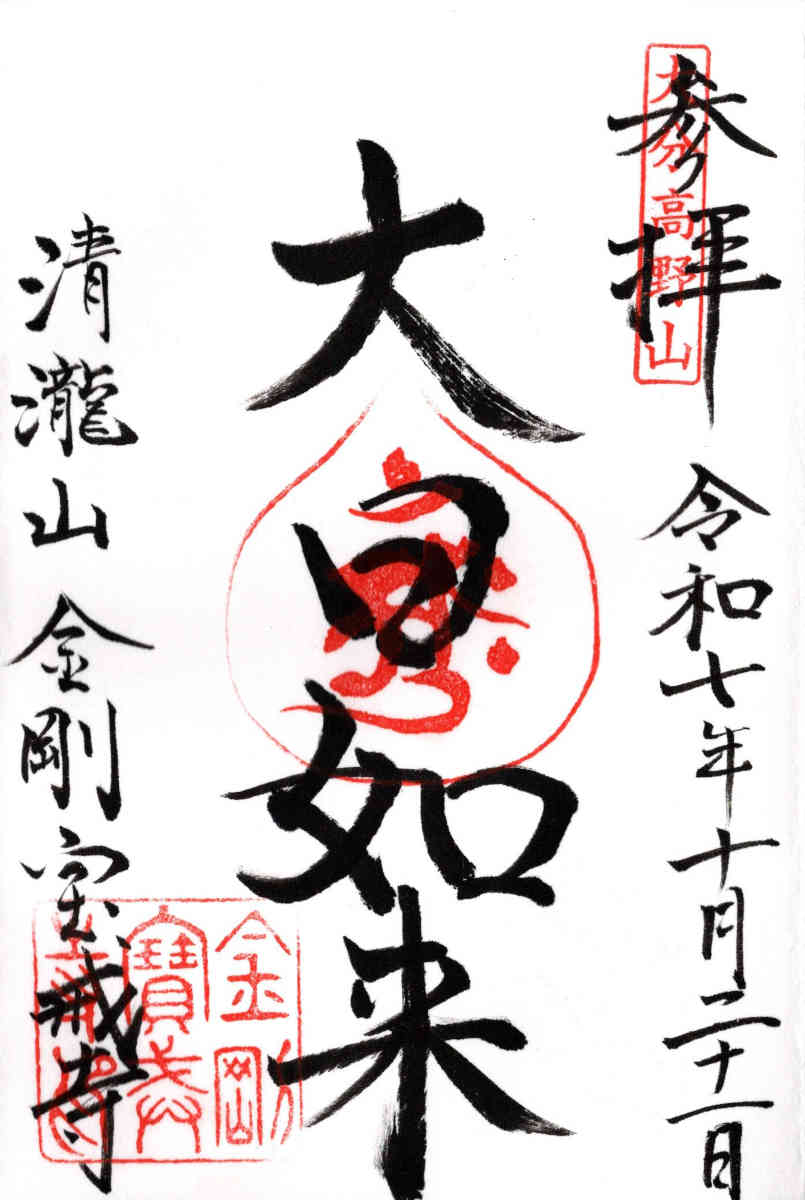 大分高野山
参拝
令和七年十月二十一日
大日如来
清瀧山 金剛宝戒寺
金剛
寶戒